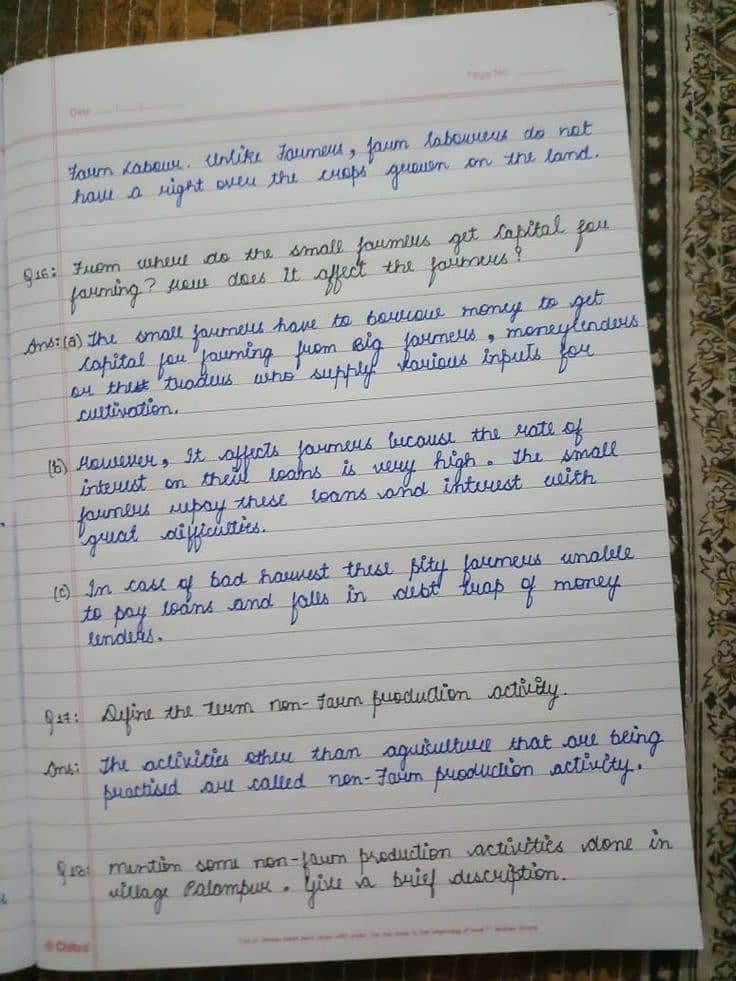 Date
Page No.
Farm Labour. Unlike Farmers, farm labourers do not
have a right over the crops grown on the land.
Q16: From where do the small farmers get capital for
farming? How does it affect the farmers?
Ans: (a) The small farmers have to borrow money to get
capital for farming from Big farmers, moneylenders
or the traders who supply various inputs for
cultivation.
(b) However, It affects farmers because the rate of
interest on their loans is very high. The small
farmers repay these loans and interest with
great difficulties.
(c) In case of bad harvest these pity farmers unable
to pay loans and falls in debt trap of money
lenders.
Q17: Define the term non-farm production activity.
Ans: The activities other than agriculture that are being
practised are called non-farm production activity.
Q18: Mention some non-farm production activities done in
village Palampur. Give a brief description.